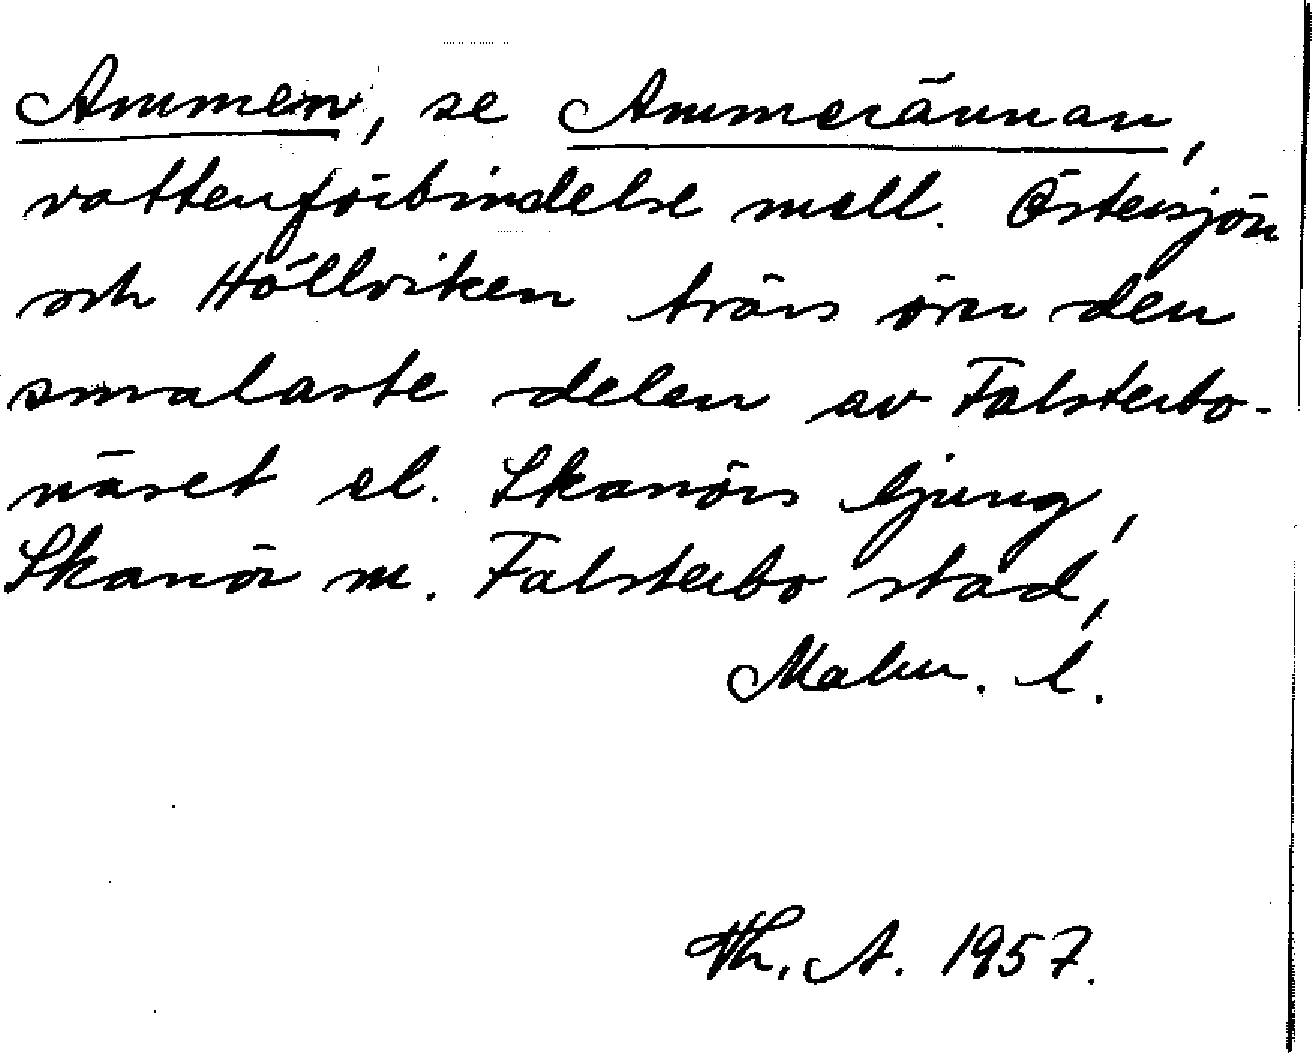 Ammen, se Ammerännan,
vattenförbindelse mell. Östersjön
och Höllviken tvärs över den
smalaste delen av Falsterbo-
näset el. Skanörs ljung,
Skanör m. Falsterbo stad,
Malm. l.
Th. A. 1957.